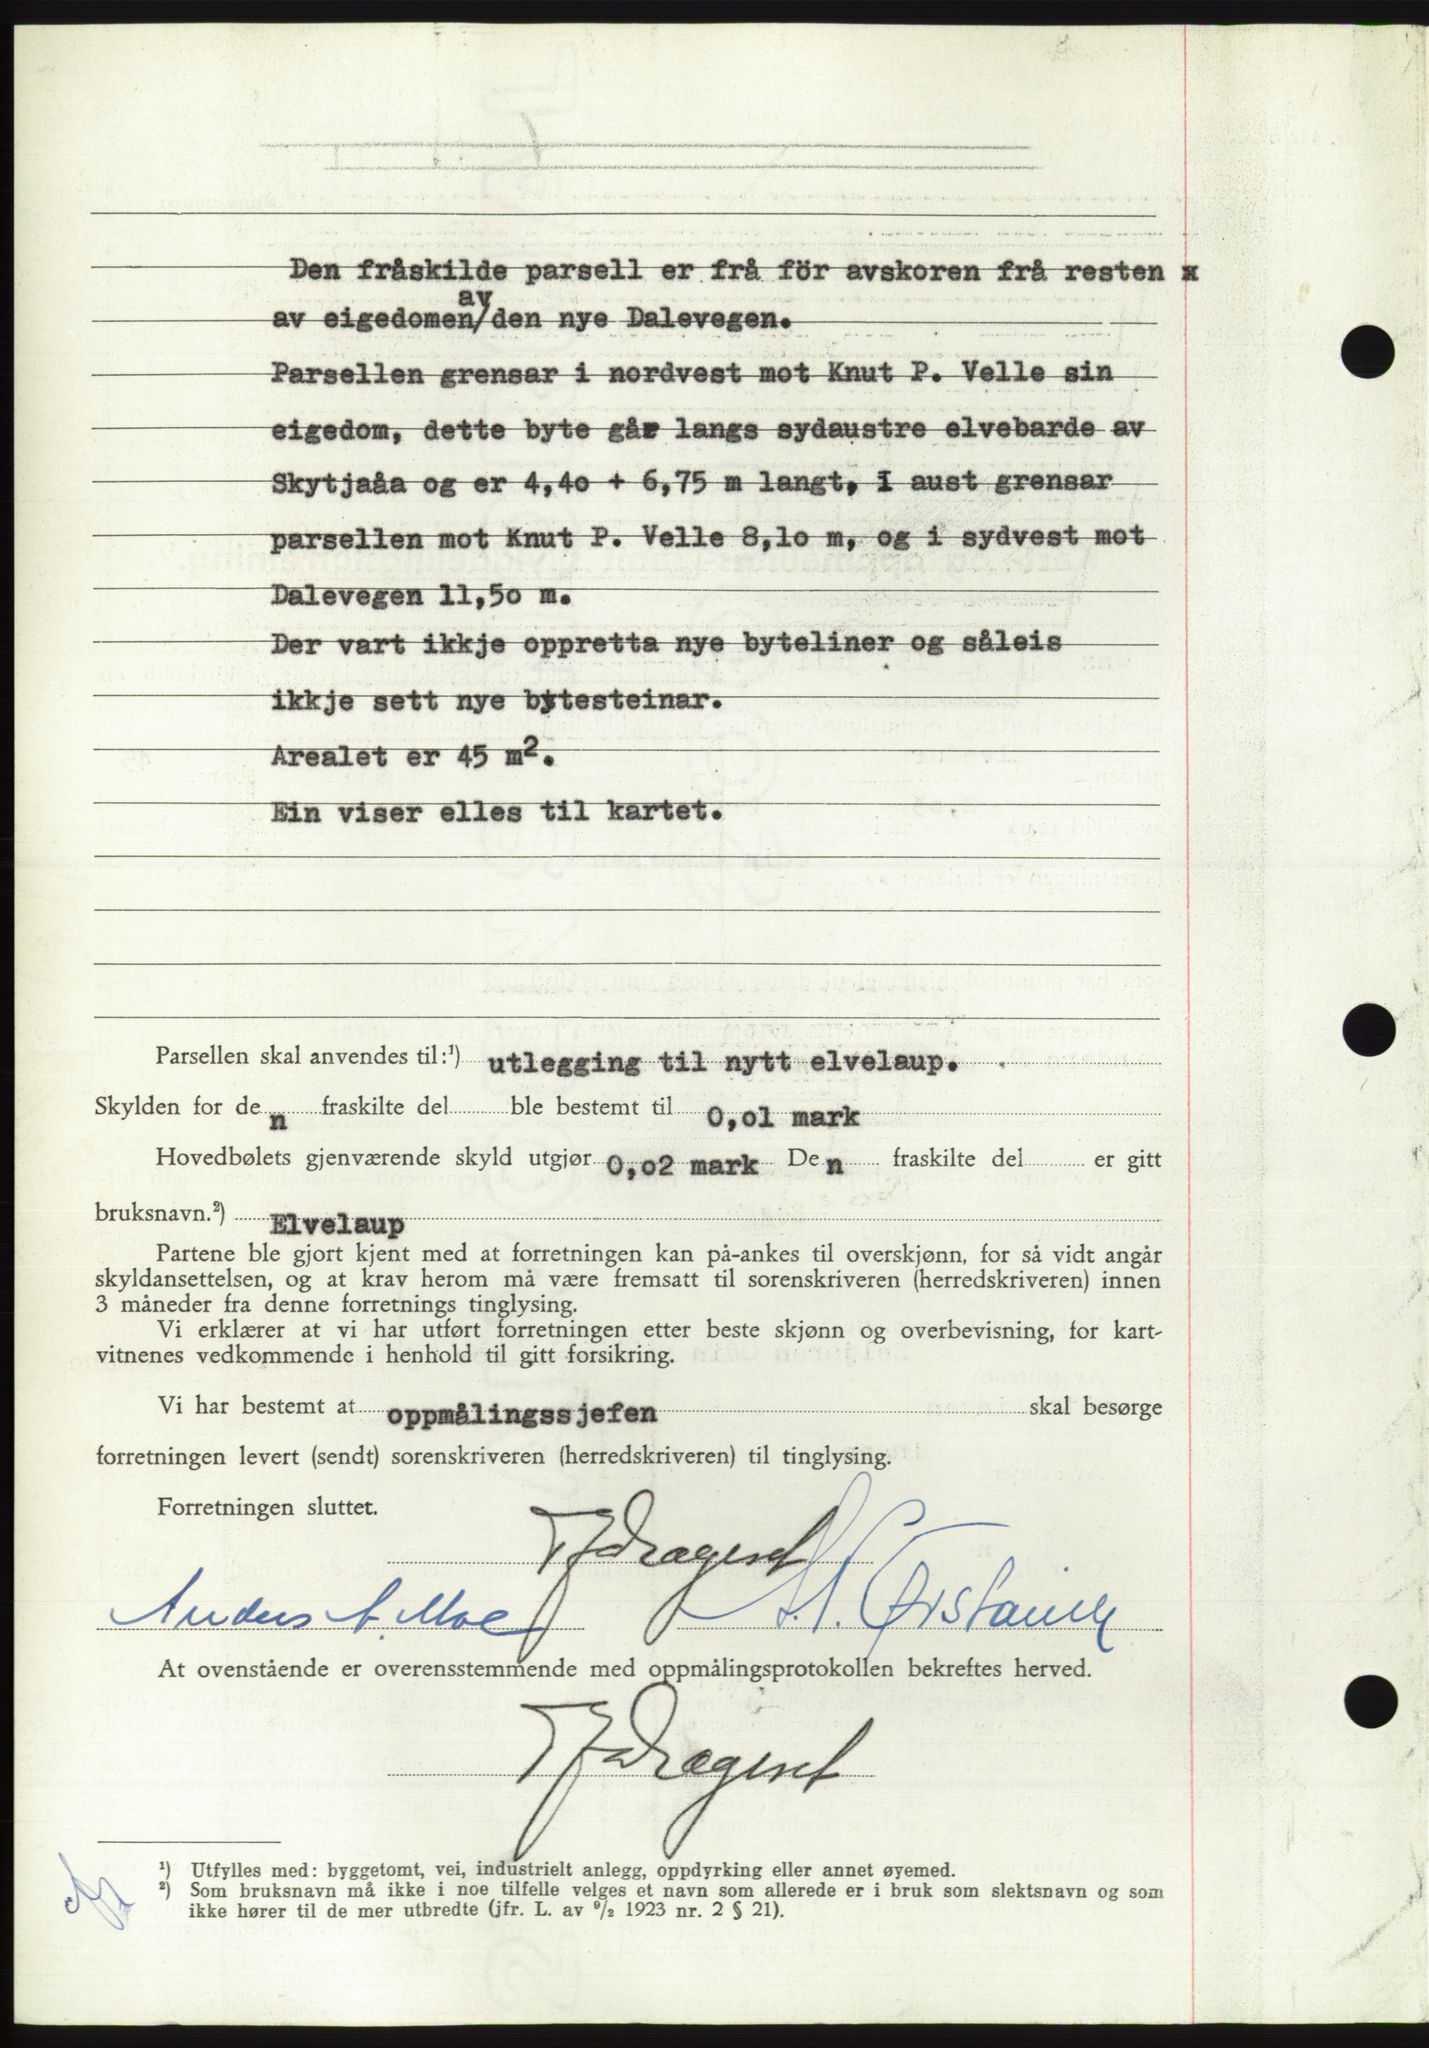 Den fråskilde parsell er frå för avskoren frå resten x
av
av eigedomen/den nye Dalevegen.
Parsellen grensar i nordvest mot Knut P. Velle sin
eigedom, dette byte går langs sydaustre elvebarde av
Skytjaåa og er 4,4o + 6,75 m langt, I aust grensar
parsellen mot Knut P. Velle 8,1o m, og i sydvest mot
Dalevegen 11,5o m.
Der vart ikkje oppretta nye byteliner og såleis
ikkje sett nye bytesteinar.
Arealet er 45 m².
Ein viser elles til kartet.
Parsellen skal anvendes til:¹) utlegging til nytt elvelaup.
Skylden for den fraskilte del ble bestemt til 0,o1 mark
Hovedbølets gjenværende skyld utgjør 0,o2 mark Den fraskilte del er gitt
bruksnavn.²) Elvelaup
Partene ble gjort kjent med at forretningen kan på-ankes til overskjønn, for så vidt angår
skyldansettelsen, og at krav herom må være fremsatt til sorenskriveren (herredskriveren) innen
3 måneder fra denne forretnings tinglysing.
Vi erklærer at vi har utført forretningen etter beste skjønn og overbevisning, for kart-
vitnenes vedkommende i henhold til gitt forsikring.
Vi har bestemt at oppmålingssjefen skal besørge
forretningen levert (sendt) sorenskriveren (herredskriveren) til tinglysing.
Forretningen sluttet.
Drageset
Anders A. Moe
At ovenstående er overensstemmende med oppmålingsprotokollen bekreftes herved.
Drageset
¹) Utfylles med: byggetomt, vei, industrielt anlegg, oppdyrking eller annet øyemed.
²) Som bruksnavn må ikke i noe tilfelle velges et navn som allerede er i bruk som slektsnavn og som
ikke hører til de mer utbredte (jfr. L. av ⁹/₂ 1923 nr. 2 § 21).